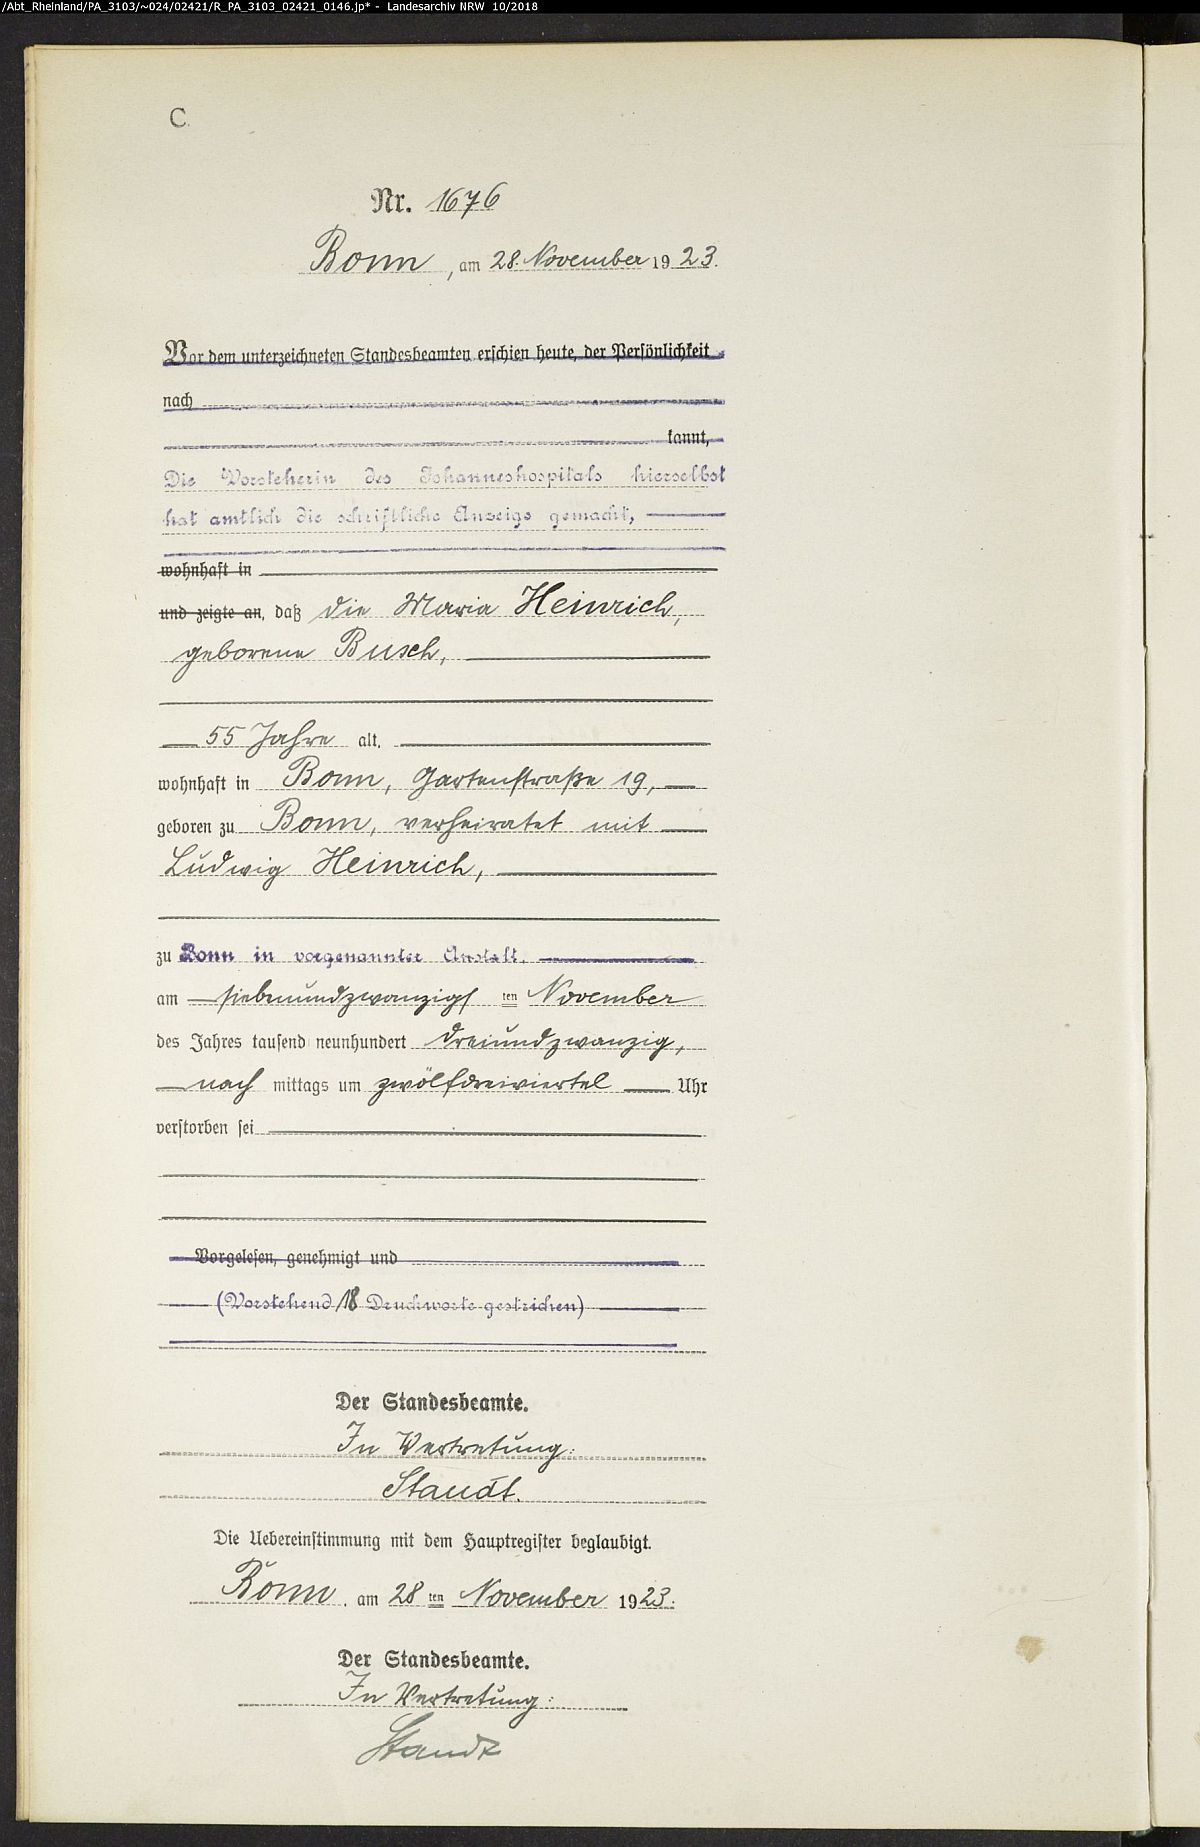 /Abt_Rheinland/PA_3103/~024/02421/R_PA_3103_02421_0146.jp* - Landesarchiv NRW 10/2018
C
Nr. 1676
Bonn, am 28. November 1923.
Vor dem unterzeichneten Standesbeamten erschien heute, der Persönlichkeit
nach
kannt,
Die Vorsteherin des Johanneshospitals hierselbst
hat amtlich die schriftliche Anzeige gemacht,
wohnhaft in
und zeigte an, daß die Maria Heinrich,
geborene Busch,
55 Jahre alt,
wohnhaft in Bonn, Gartenstraße 19,
geboren zu Bonn, verheiratet mit
Ludwig Heinrich,
zu Bonn in vorgenannter Anstalt,
am siebenundzwanzigsten November
des Jahres tausend neunhundert dreiundzwanzig,
nach mittags um zwölfdreiviertel Uhr
verstorben sei
Vorgelesen, genehmigt und
(Vorstehend 18 Druckworte gestrichen)
Der Standesbeamte.
In Vertretung:
Staudt.
Die Uebereinstimmung mit dem Hauptregister beglaubigt.
Bonn, am 28ten November 1923.
Der Standesbeamte.
In Vertretung:
Staudt